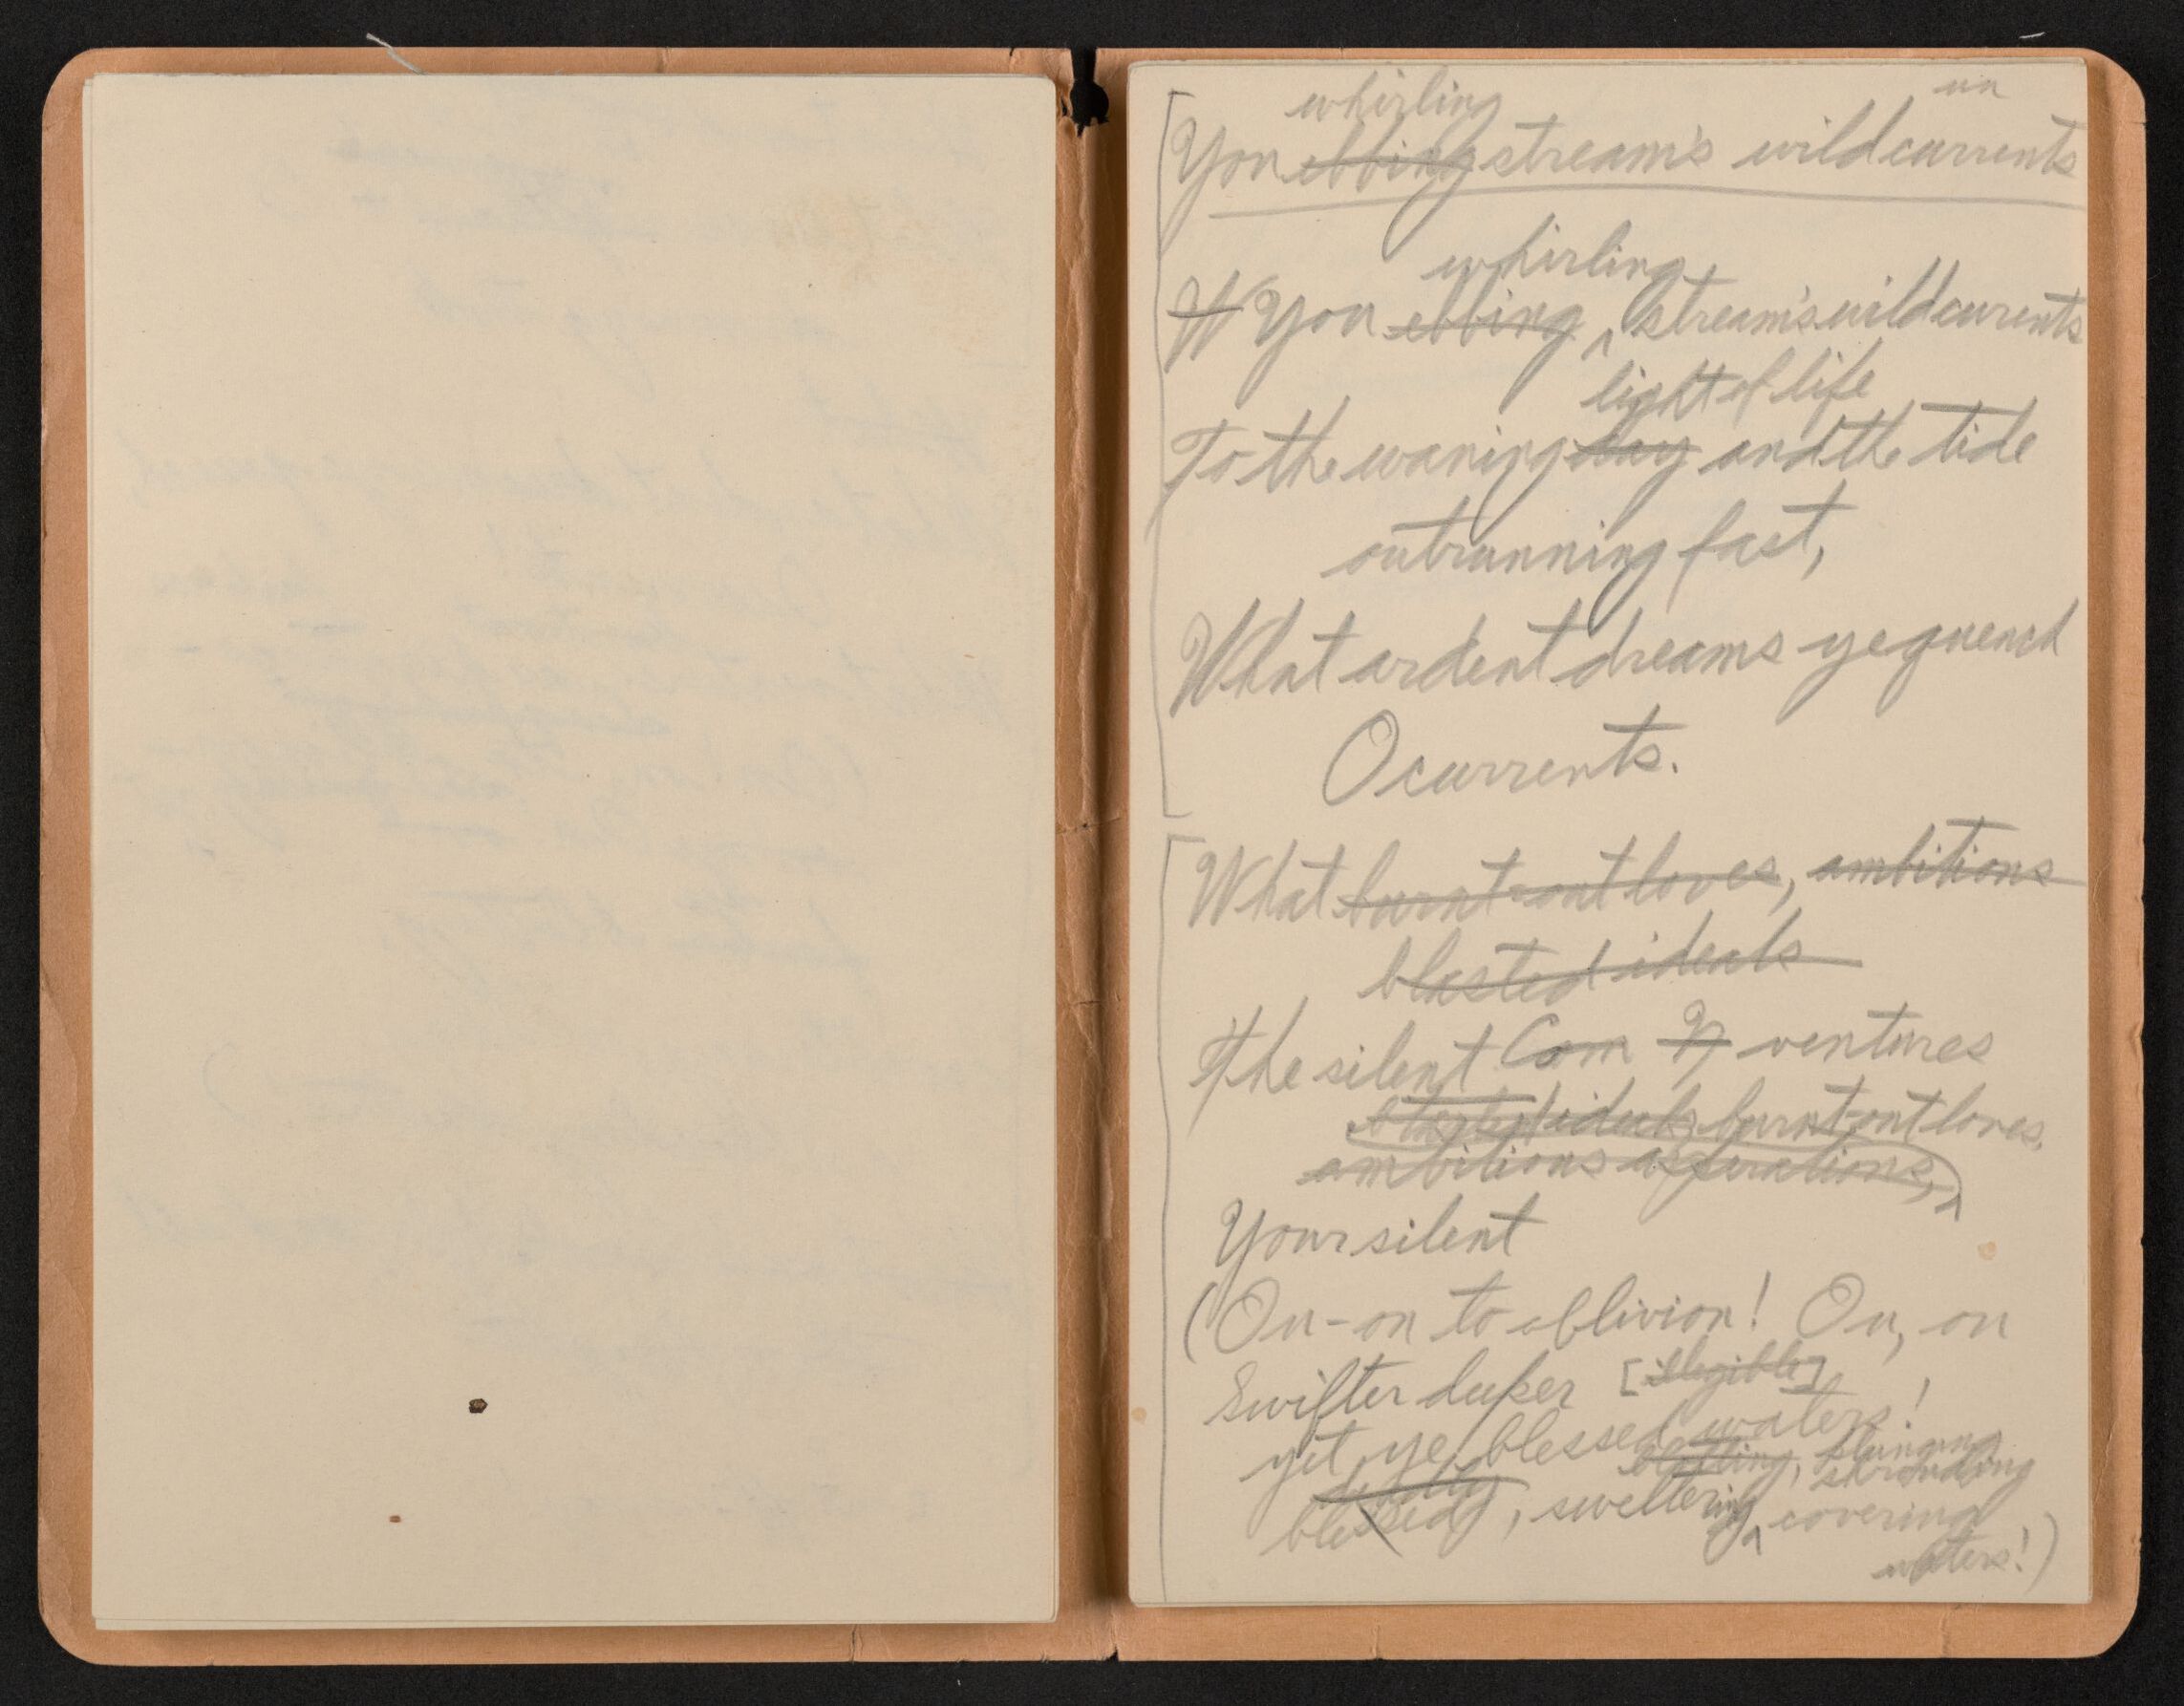 whirling un
[You ebbing stream's wild currents
whirling
W You ebbing ^ stream's wild curents
light of life
To the waning day and the tide
outrunning fast,
What ardent dreams ye quench
O currents.
[What burnt-out loves, ambitions
blasted ideals
The silent Com ventures
blasted ideals, burnt-out loves,
ambitions aspirations, ^
Your silent
(On-on to oblivion! On, on
Swifter deeper [illegible]
yet, ye blessed waters!
shrouding
blessed, sweltering ^ covering
waters!)